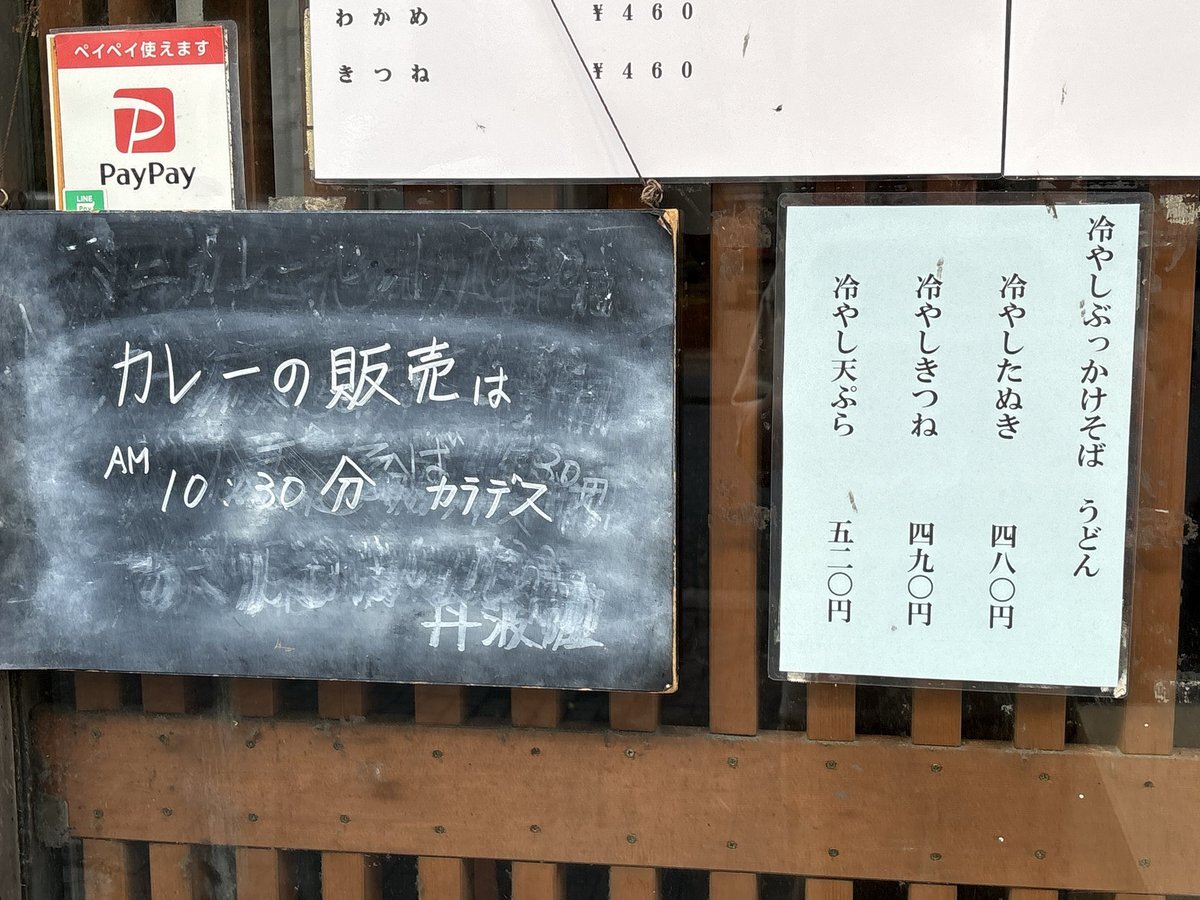 ペイペイ使えます
PayPay
LINE
Pay
わかめ ¥460
きつね ¥460
カレーの販売は
AM 10:30分 カラデス
丹波屋
冷やしぶっかけそば うどん
冷やしたぬき 四八〇円
冷やしきつね 四九〇円
冷やし天ぷら 五二〇円